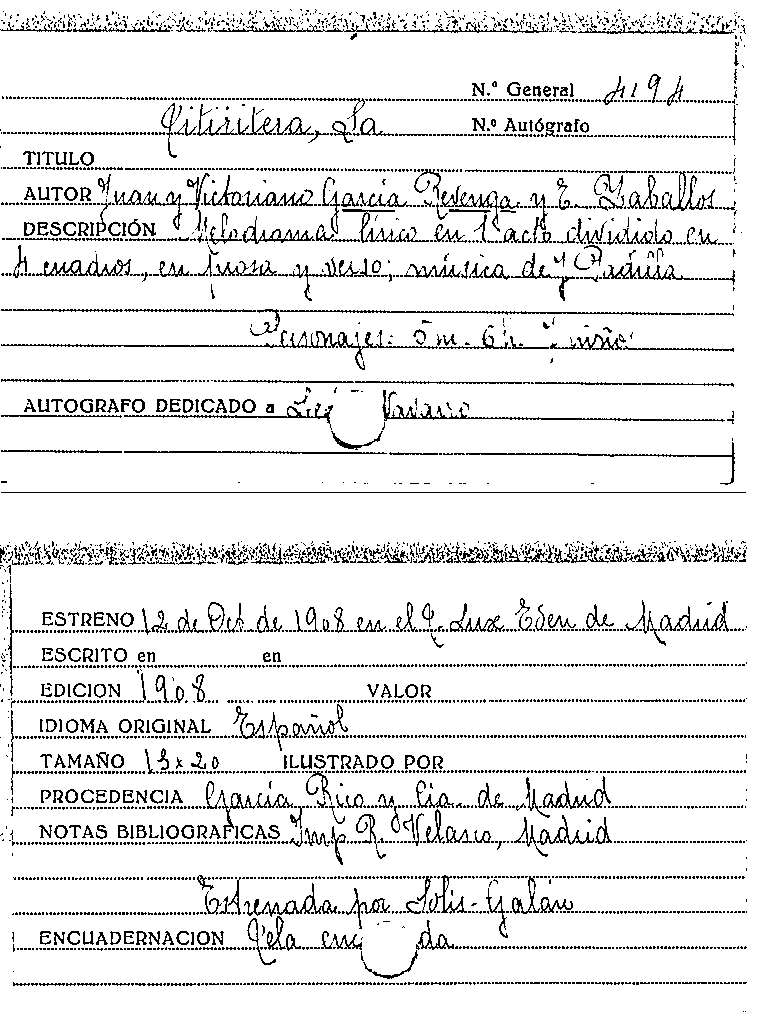 N.º General 4194
Titiritera, La N.º Autógrafo
TITULO
AUTOR Juan y Victoriano García Revenga y E. Zaballos
DESCRIPCIÓN Melodrama lírico en 1 acto dividido en
4 cuadros, en prosa y verso; música de J. Padilla
Personajes: 5 m. 6 h. niño
AUTOGRAFO DEDICADO a Navarro
ESTRENO 12 de Oct de 1908 en el T. Lux Eden de Madrid
ESCRITO en en
EDICION 1908 VALOR
IDIOMA ORIGINAL Español
TAMAÑO 13 x 20 ILUSTRADO POR
PROCEDENCIA García Rico y Cia. de Madrid
NOTAS BIBLIOGRAFICAS Imp R. Velasco, Madrid
Estrenada por Solis-Galán
ENCUADERNACION Tela